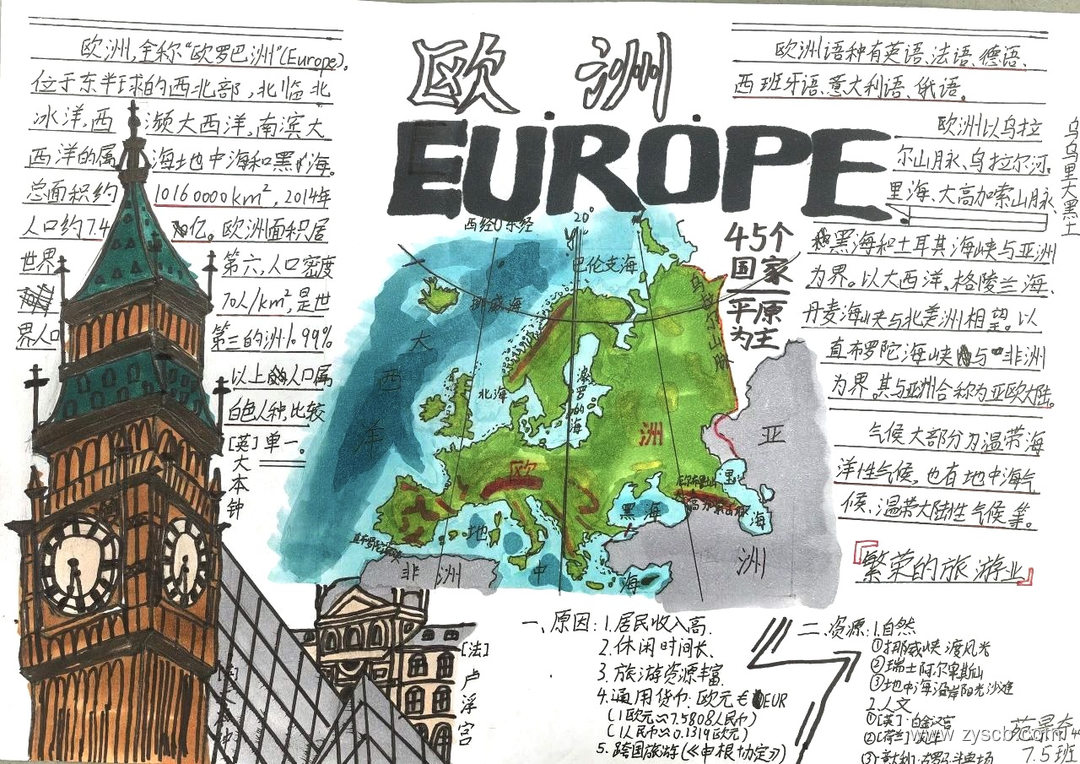 欧洲
EUROPE
欧洲,全称“欧罗巴洲”(Europe),
位于东半球的西北部,北临北
冰洋,西濒大西洋,南滨大
西洋的属海地中海和黑海。
总面积约10160000km²,2014年
人口约7.4亿。欧洲面积居
世界第六,人口密度
70人/km²,是世
界人口第三的洲,99%
以上人口属
白色人种,比较
单一。
[英]大本钟
西经0°东经
20°
巴伦支海
挪威海
乌拉尔山脉
大西洋
北海
波罗的海
欧洲
亚洲
黑海
里海
地中海
非洲
45个
国家
平原
为主
欧洲语种有英语、法语、德语、
西班牙语、意大利语、俄语。
欧洲以乌拉
尔山脉、乌拉尔河、
里海、大高加索山脉、
黑海和土耳其海峡与亚洲
为界。以大西洋、格陵兰海、
丹麦海峡与北美洲相望。以
直布罗陀海峡与非洲
为界,其与亚洲合称为亚欧大陆。
乌乌里大黑土
气候大部分为温带海
洋性气候,也有地中海气
候、温带大陆性气候等。
『繁荣的旅游业』
一、原因:1.居民收入高.
2.休闲时间长、
3.旅游资源丰富
4.通用货币欧元€EUR
(1欧元≈7.5808人民币)
(1人民币≈0.1319欧元)
5.跨国旅游(《申根协定》)
二.资源:1.自然
①挪威峡湾风光
②瑞士阿尔卑斯山
③地中海沿岸阳光沙滩
2.人文
①[英]·白金汉宫
②[荷兰]
③意大利·
[法]卢浮宫
www.zyscb.com
7.5班